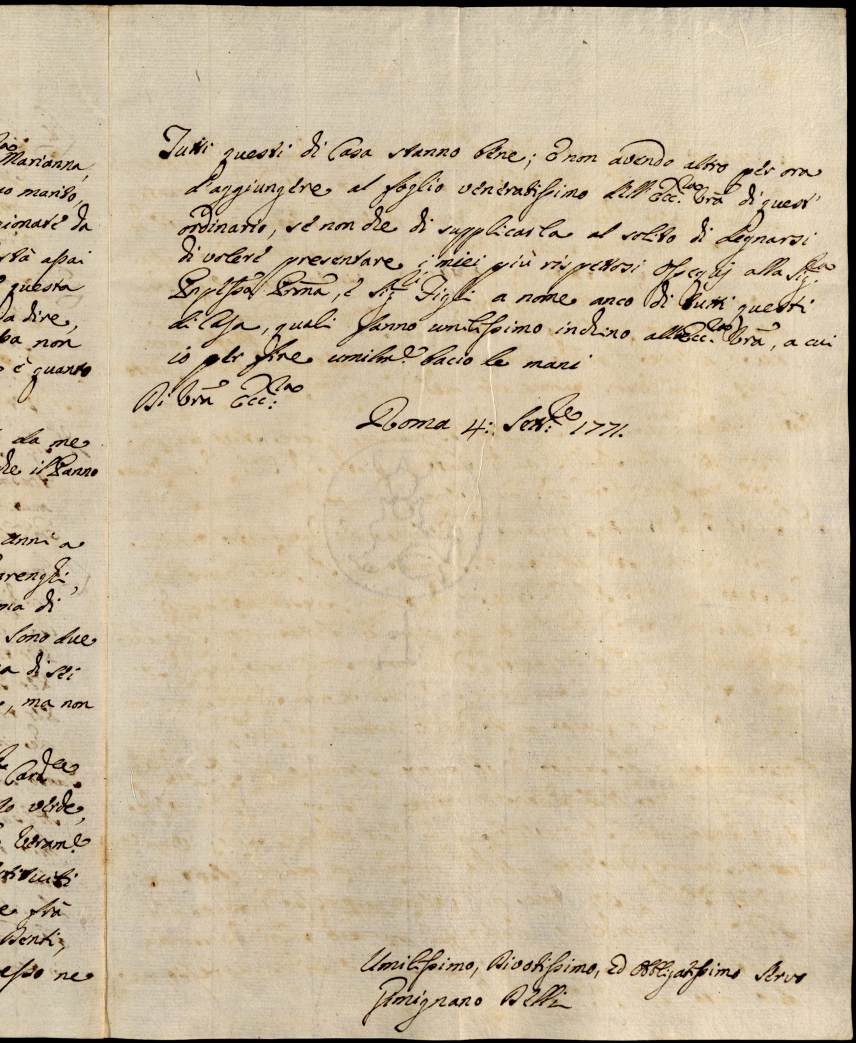 Marianna,
uo marito,
zionare da
rtà assai
questa
da dire,
ba non
è quanto
da me
che il Panno
anni a
arenghi,
ma di
sono due
a di sei
, ma non
Card.le
lo verde,
Teram.e
stituiti
e frà
Denti,
esso ne
Tutti questi di Casa stanno bene; e non avendo altro per ora
d'aggiungere al foglio veneratissimo dell'Ecc.za Vrã di quest'
ordinario, se non che di supplicarla al solito di degnarsi
di voler presentare i miei più rispettosi ossequj alla Sig.ra
Pnpessa Prm̃a, e Sig.i Figli a nome anco di tutti questi
di Casa, quali fanno umilissimo inchino all'Ecc.za Vrã, a cui
io per fine umilm.e bacio le mani
Di Vrã Ecc.za
Roma 4: Sett.re 1771.
Umilissimo, Divotissimo, ed Obbligatissimo Servo
Gimignano Belli